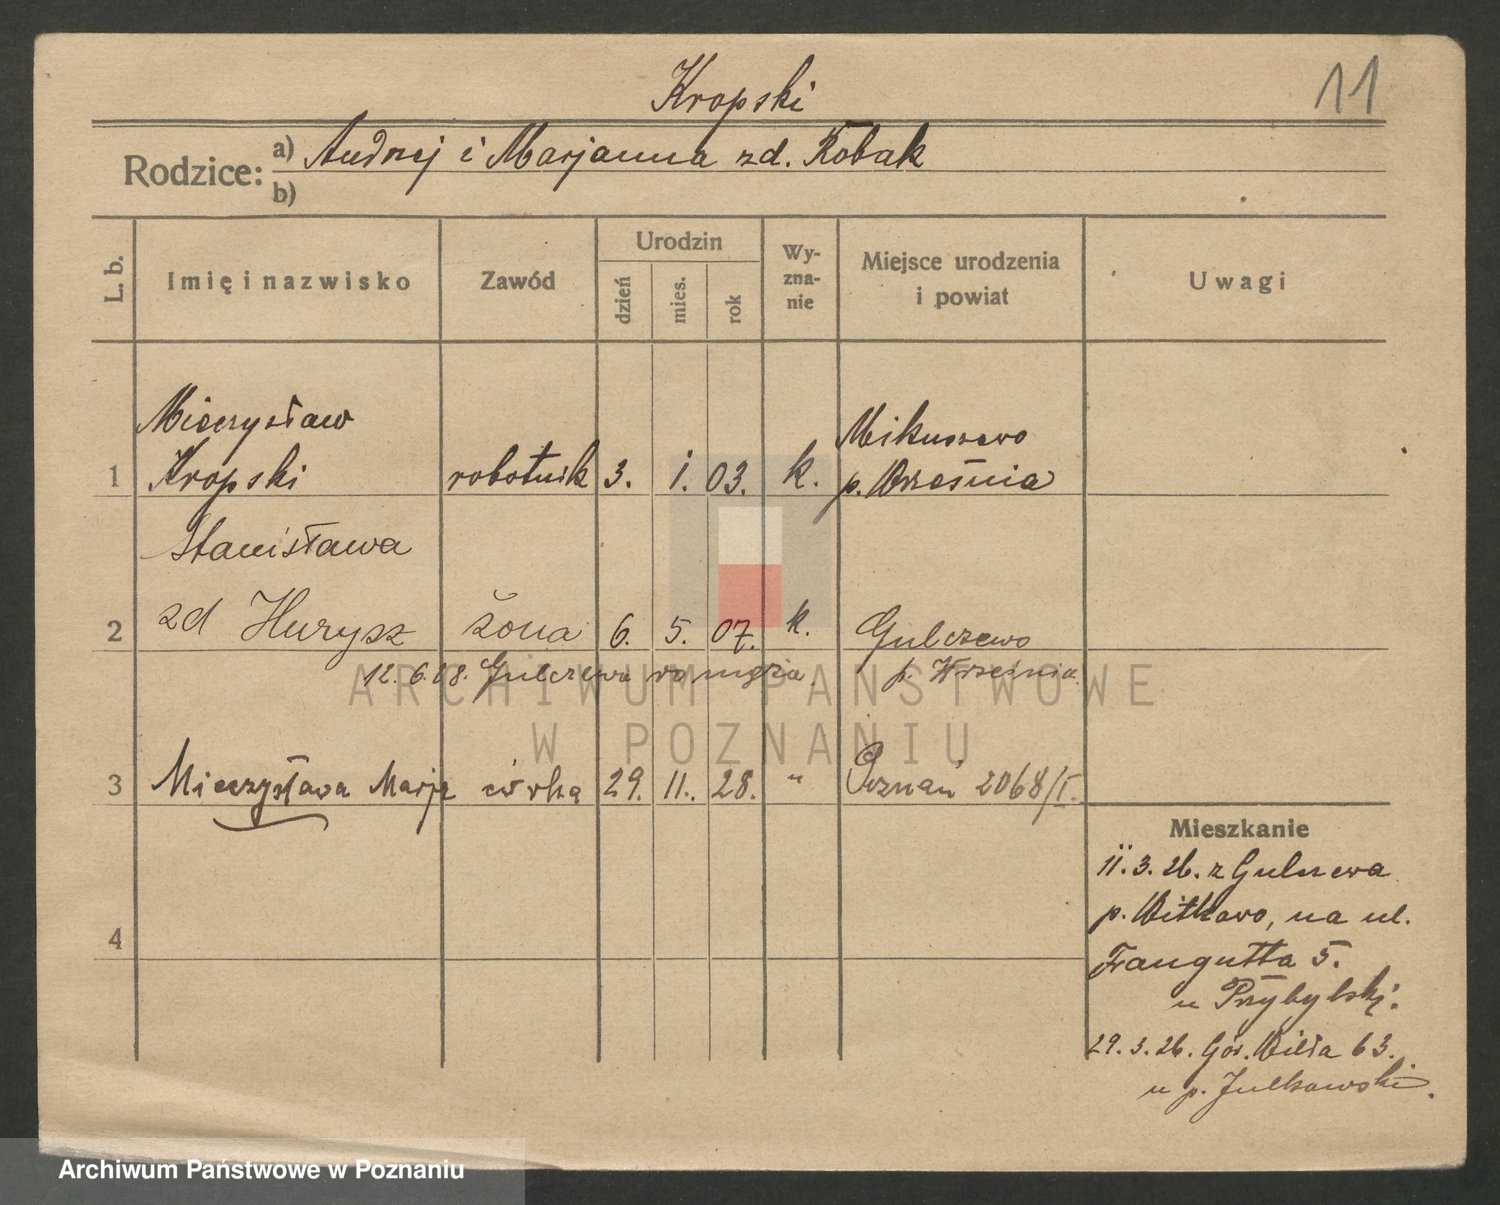 Kropski
11
Rodzice: a) Andrzej i Marjanna zd. Kobak
b)
L. b.
Imię i nazwisko
Zawód
Urodzin
dzień
mies.
rok
Wy-
zna-
nie
Miejsce urodzenia
i powiat
Uwagi
Mieczysław
Mikuszewo
1 Kropski robotnik 3. 1. 03. k. p. Września
Stanisława
2 zd Hurysz żona 6. 5. 07. k. Gulczewo
12. 6. 28. Gulczewa p. Września
3 Mieczysława Marja córka 29. 11. 28. " Poznań 2068/I.
4
Mieszkanie
11. 3. 26. z Gulczewa
p. Witkowo, na ul.
Traugutta 5.
u Przybylski.
29. 3. 26. Gór. Wilda 63.
u p. Julkowski.
ARCHIWUM PAŃSTWOWE
W POZNANIU
Archiwum Państwowe w Poznaniu